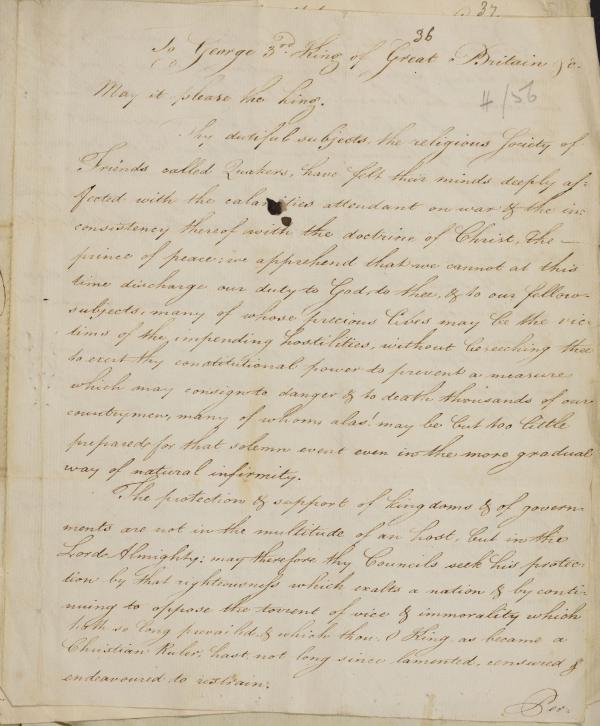 37.
36
To George 3rd King of Great Britain &c.
May it please the King.
4/56
Thy dutiful subjects, the religious Society of
Friends called Quakers, have felt their minds deeply af-
fected with the calamities attendant on war & the in-
consistency thereof with the doctrine of Christ, the —
prince of peace: we apprehend that we cannot at this
time discharge our duty to God, to thee, & to our fellow-
subjects, many of whose precious lives may be the vic-
tims of the impending hostilities, without beseeching thee
to exert thy constitutional power to prevent a measure
which may consign to danger & to death thousands of our
countrymen, many of whom alas! may be but too little
prepared for that solemn event even in the more gradual
way of natural infirmity.
The protection & support of kingdoms & of govern-
ments are not in the multitude of an host, but in the
Lord Almighty: may therefore thy Councils seek his protec-
tion by that righteousness which exalts a nation & by conti-
nuing to oppose the torrent of vice & immorality which
hath so long prevailed & which thou, O King, as became a
Christian Ruler, hast not long since lamented, censured &
endeavoured to restrain.
Per-